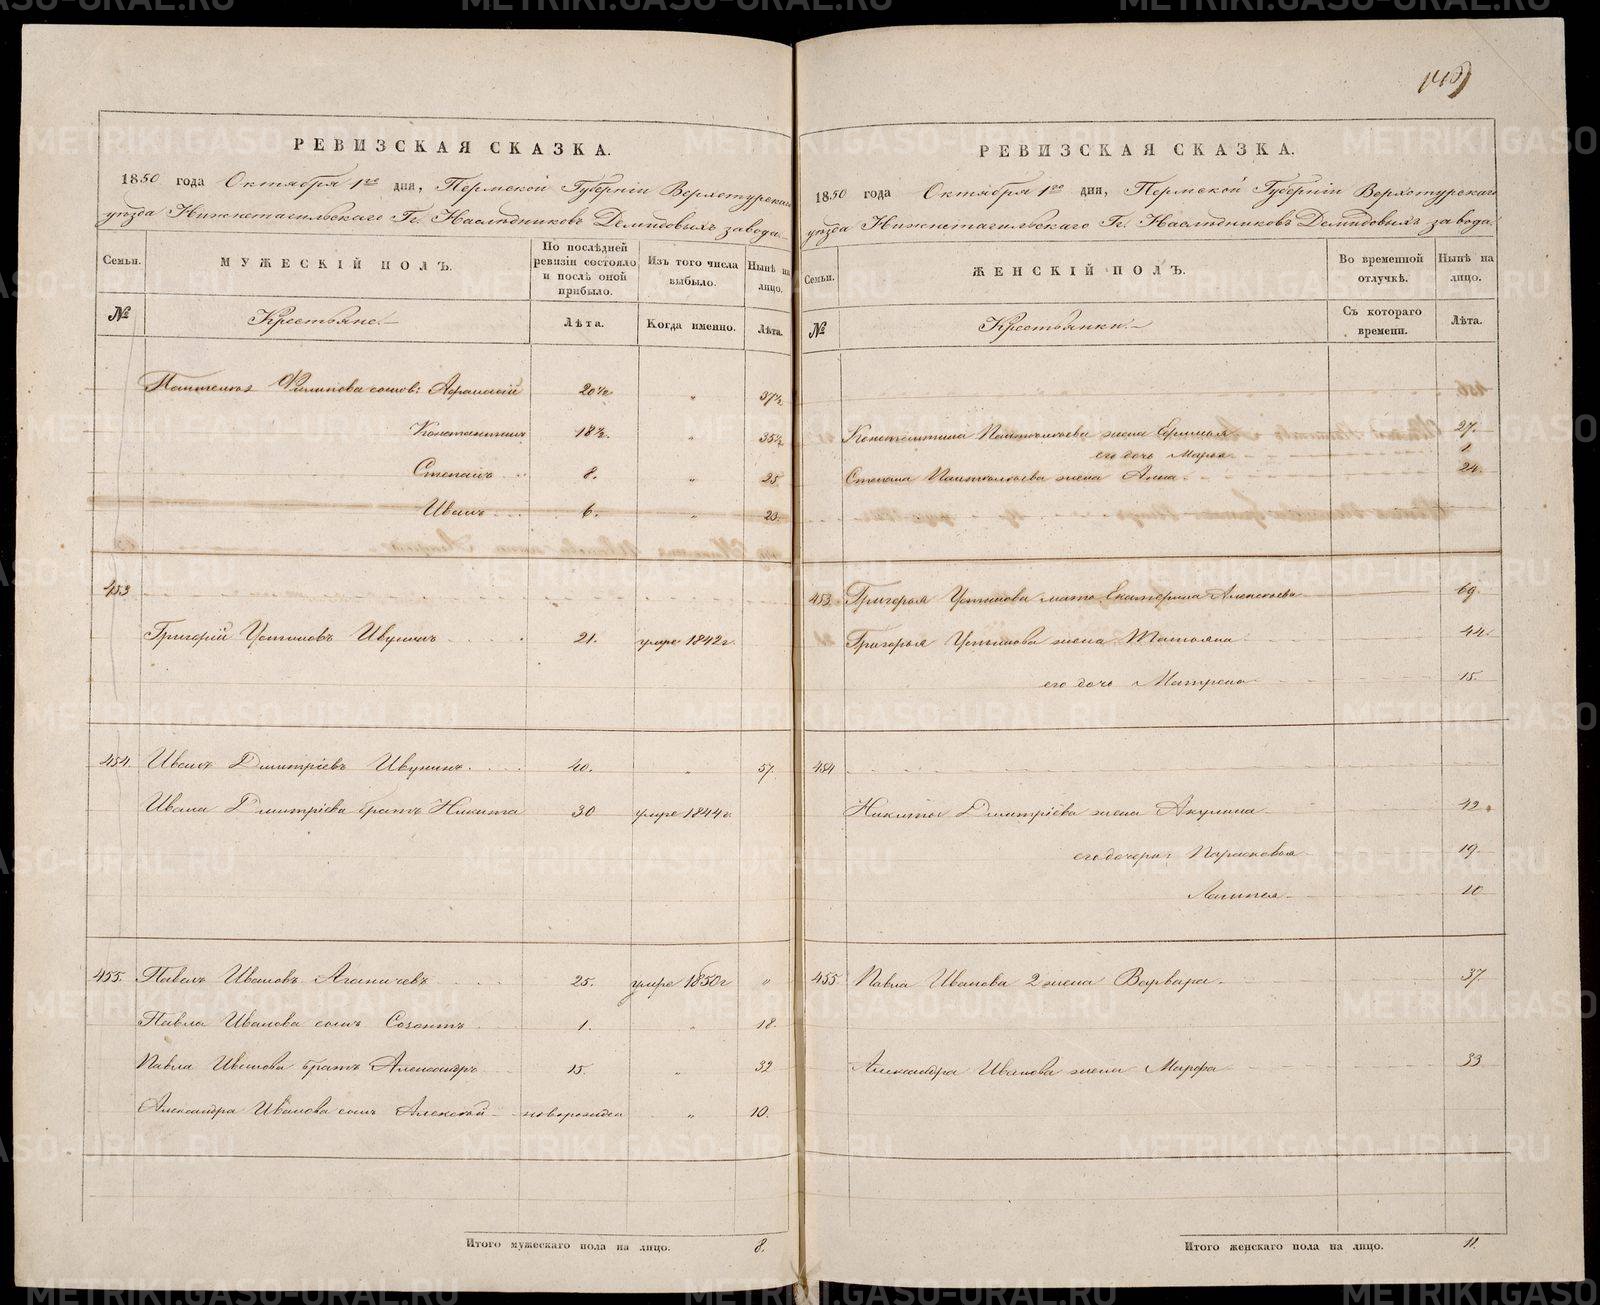 РЕВИЗСКАЯ СКАЗКА.
1850 года Октября 1го дня, Пермской Губерніи Верхотурскаго
уѣзда Нижнетагильскаго Гг. Наслѣдниковъ Демидовыхъ завода.
Семьи. МУЖЕСКІЙ ПОЛЪ. По послѣдней ревизіи состояло и послѣ оной прибыло. Изъ того числа выбыло. Нынѣ на лицо.
№ Крестьяне. Лѣта. Когда именно. Лѣта.
Пантелея Филипова сынов: Афанасій 20½ „ 37½
Константинъ 18½ „ 35½
Степанъ 8. „ 25
Иванъ 6. „ 23.
453
Григорій Устиновъ Ивунинъ 21. умре 1842 г.
454. Иванъ Дмитріевъ Ивунинъ 40. „ 57.
Ивана Дмитріева братъ Никита 30 умре 1844 г.
455. Павелъ Ивановъ 25. умре 1850 г „
Павла Иванова сынъ Созонтъ 1. „ 18.
Павла Иванова братъ Александръ 15. „ 32
Александра Иванова сынъ Алексѣй новорожден „ 10.
Итого мужескаго пола на лицо. 8.
РЕВИЗСКАЯ СКАЗКА.
1850 года Октября 1го дня, Пермской Губерніи Верхотурскаго
уѣзда Нижнетагильскаго Гг. Наслѣдниковъ Демидовыхъ завода.
Семьи. ЖЕНСКІЙ ПОЛЪ. Во временной отлучкѣ. Нынѣ на лицо.
№ Крестьянки. Съ котораго времени. Лѣта.
Константина Пантелѣева жена 27.
его дочь Марья 1.
Степана Пантелѣева жена Анна 24.
453. Григорья Устинова мать Екатерина Алексѣева 69.
Григорья Устинова жена Татьяна 44.
его дочь Матрена 15.
454
Никиты Дмитріева жена Акулина 42.
его дочери: Парасковья 19.
10
455 Павла Иванова 2 жена Варвара 37.
Александра Иванова жена Марфа 33
Итого женскаго пола на лицо. 11.
METRIKI.GASO-URAL.RU